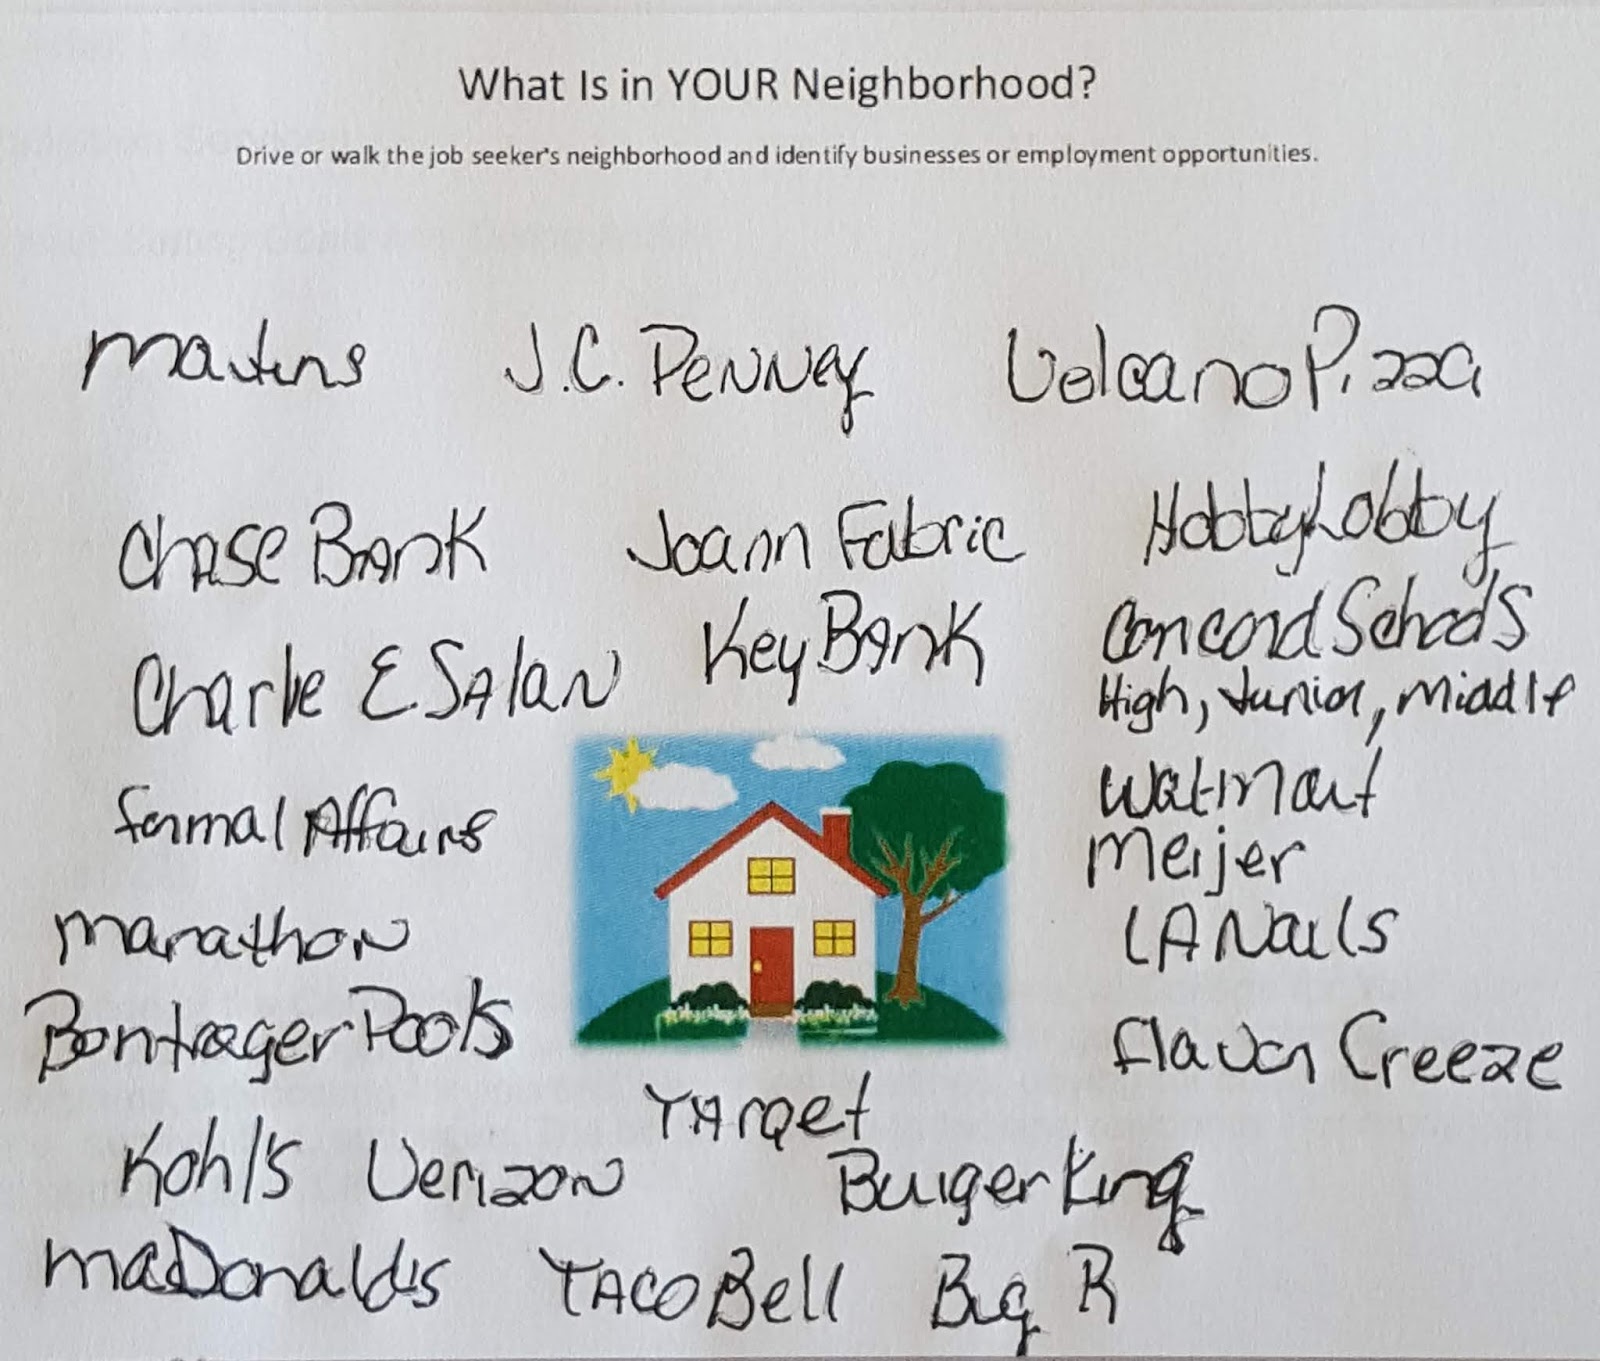 What Is in YOUR Neighborhood?
Drive or walk the job seeker's neighborhood and identify businesses or employment opportunities.
Martins J.C. Penney Volcano Pizza
Chase Bank Joann Fabric Hobby Lobby
Key Bank Concord Schools
Charlie E. Salan High, Junior, Middle
Formal Affairs Walmart
Meijer
Marathon LA Nails
Bontrager Pools Flavor Freeze
Target
Kohl's Verizon Burger King
McDonald's Taco Bell Big R